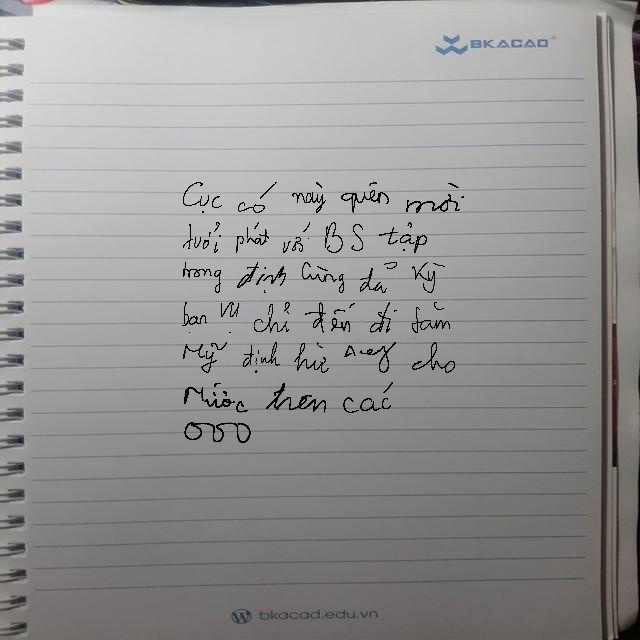 BKACAD
Cục có này quên mời
tưới phát với BS tập
trong định Cùng đã Kỳ
bạn vị chỉ đến đi tằm
Mỹ định hiè cho
Nước tren các
000
bkacad.edu.vn